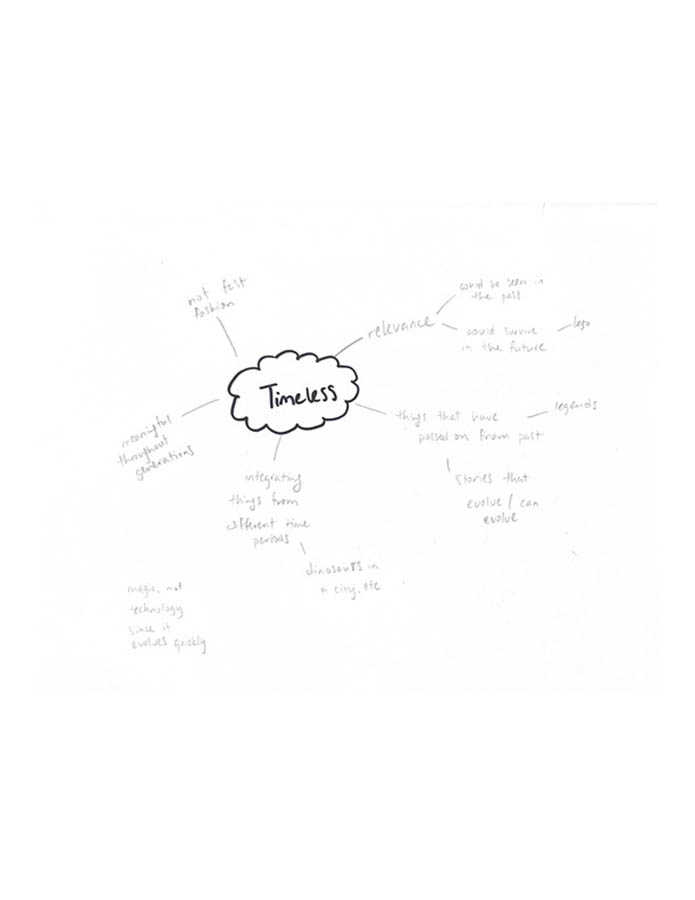 not fast
fashion
could be seen in
the past
relevance
could survive
in the future
lego
Timeless
things that have
passed on from past
legends
stories that
evolve / can
evolve
meaningful
throughout
generations
integrating
things from
different time
periods
dinosaurs in
a city, etc
magic, not
technology
since it
evolves quickly